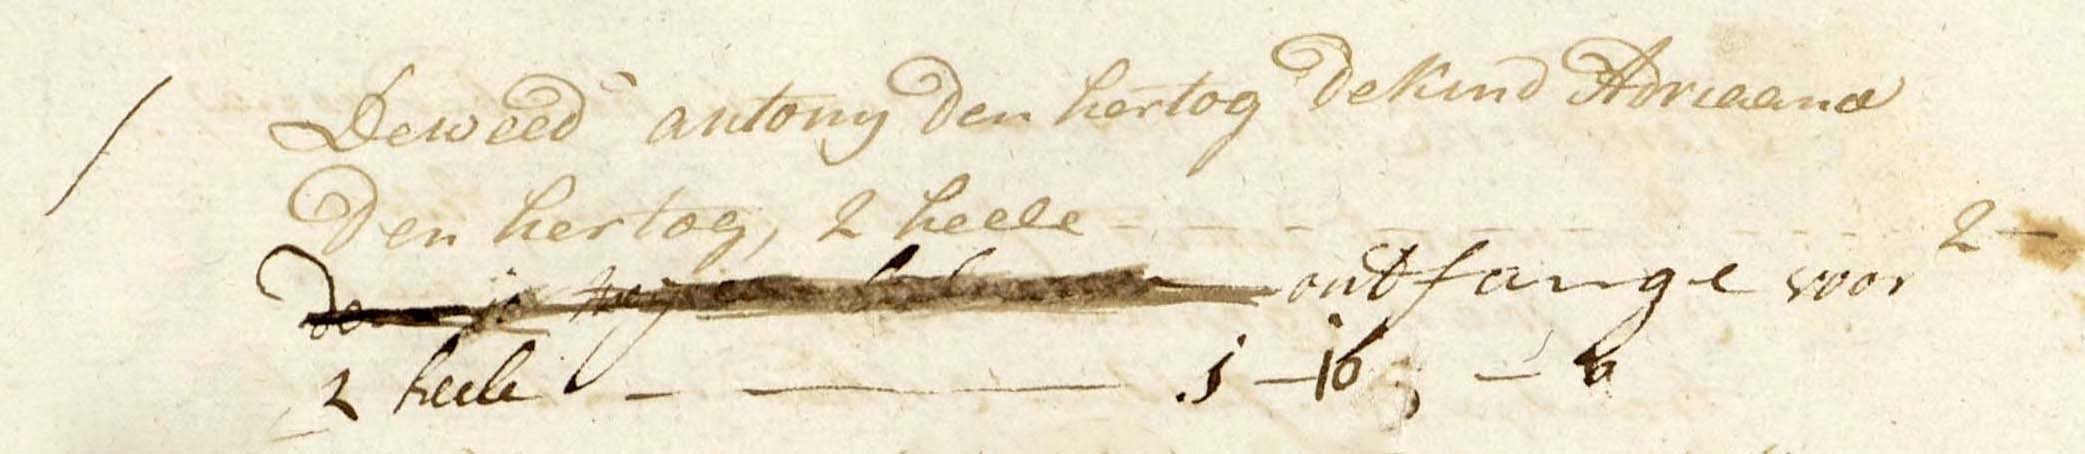 De weed antony Den hertog De kind Adriaana
Den hertog, 2 heele - - - - - - - - - - 2 -
ontfange voor
2 heele - — 1 - 16 - 0